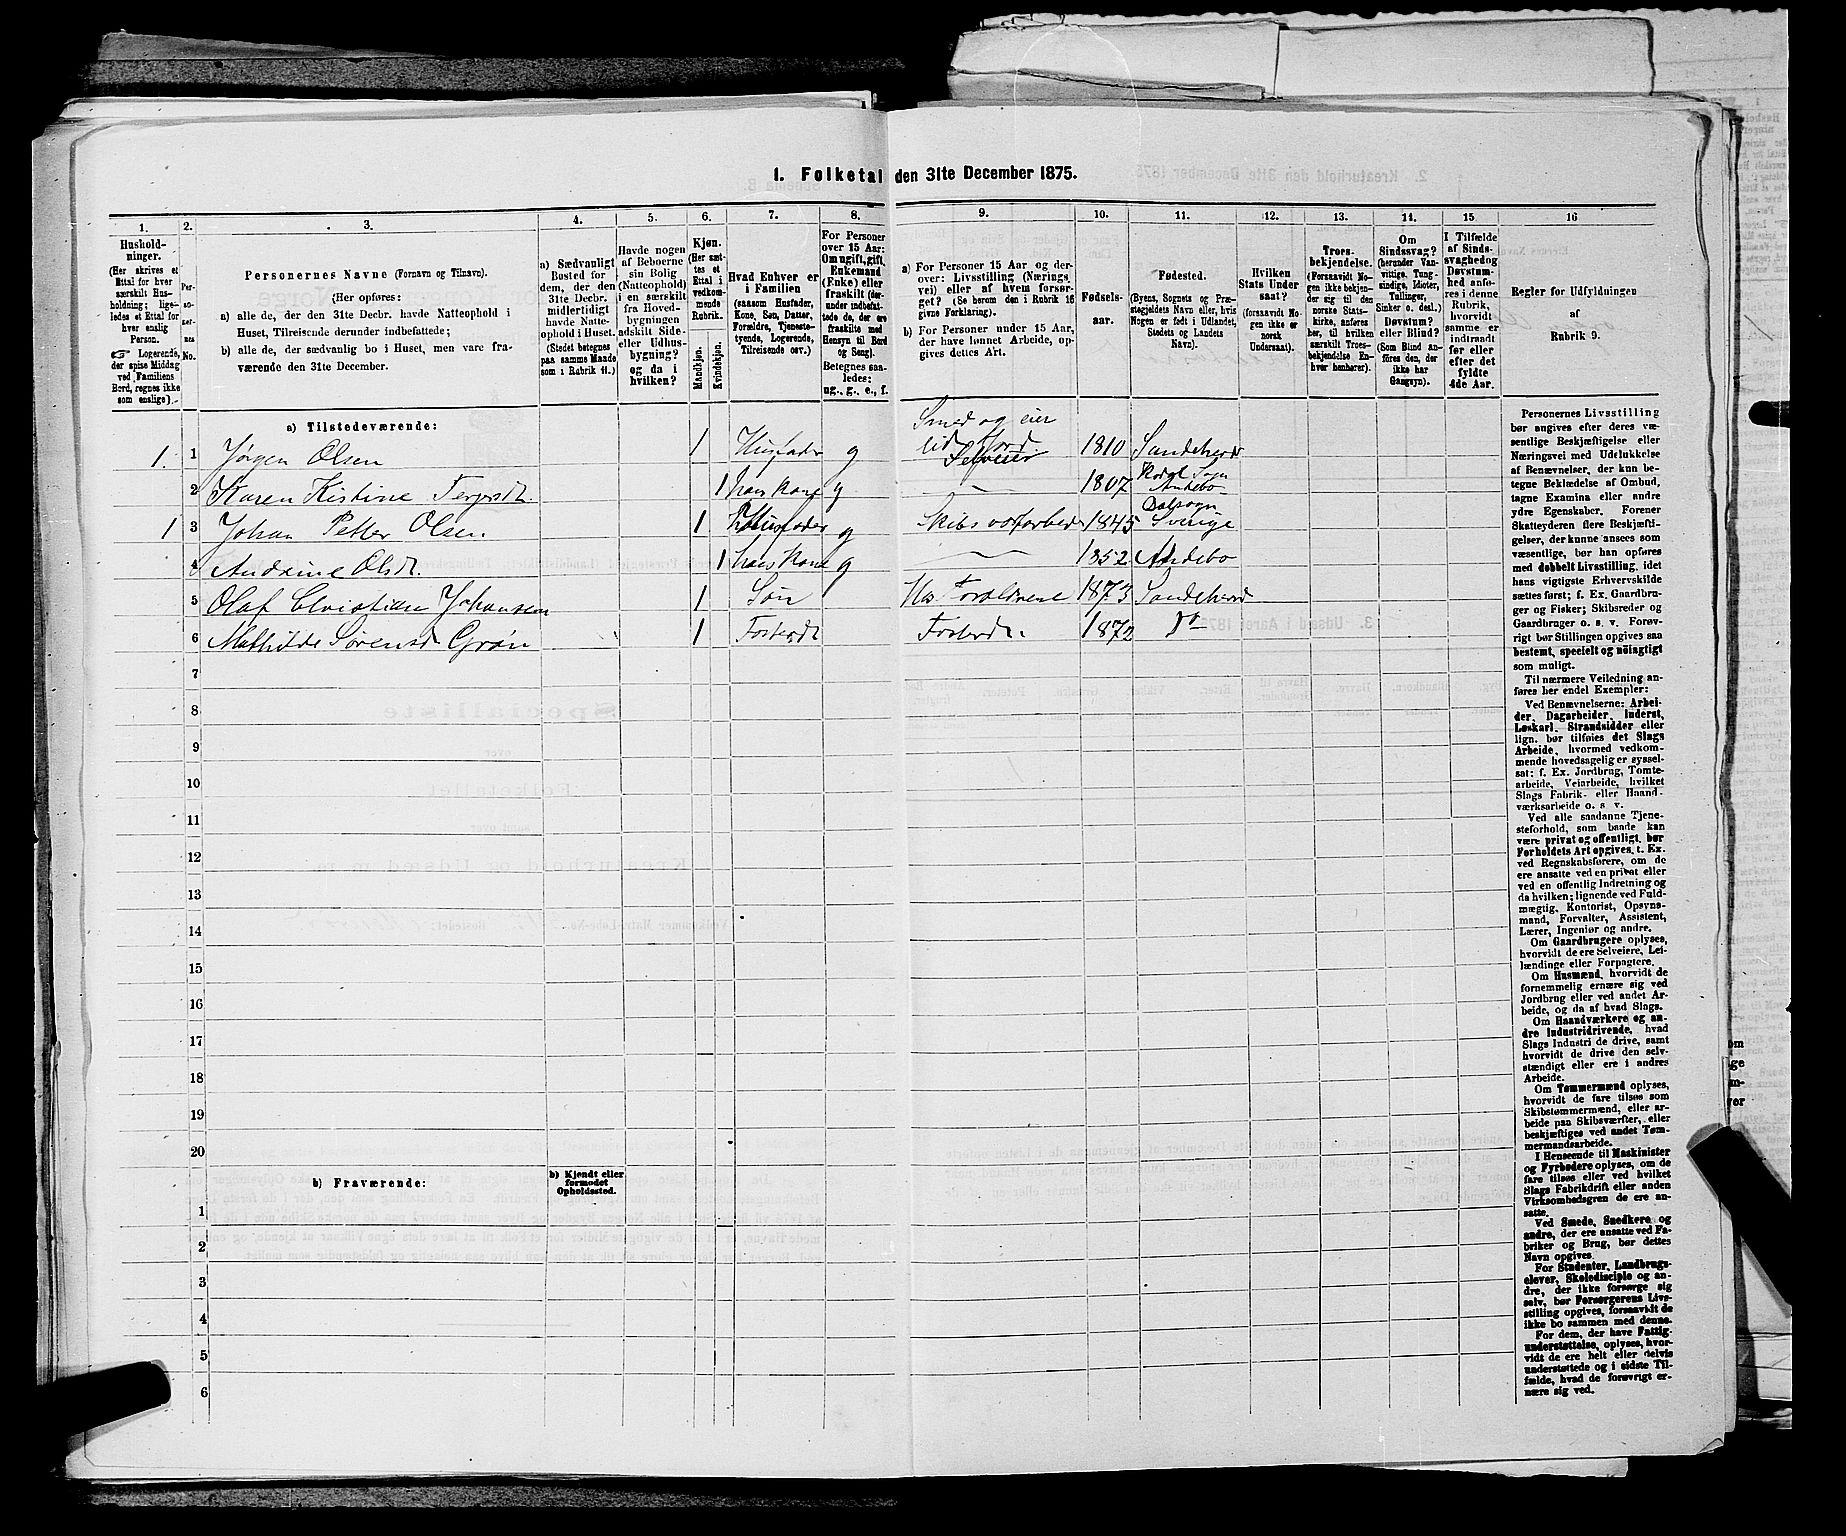 1. Folketal den 31te December 1875.
1. 2. 3. 4. 5. 6. 7. 8. 9. 10. 11. 12. 13. 14. 15 16
Hushold-
ninger.
(Her skrives et
Ettal for hver
særskilt Hus-
holdning; lige-
ledes et Ettal for
hver enslig
Person.
☞ Logerende,
der spise Middag
ved Familiens
Bord, regnes ikke
som enslige).
Per-
so-
ner-
nes
No.
Personernes Navne (Fornavn og Tilnavn).
(Her opføres:
a) alle de, der den 31te Decbr. havde Natteophold i
Huset, Tilreisende derunder indbefattede;
b) alle de, der sædvanlig bo i Huset, men vare fra-
værende den 31te December.
a) Sædvanligt
Bosted for
dem, der den
31te Decbr.
midlertidigt
havde Natte-
ophold i Huset.
(Stedet betegnes
paa samme Maade
som i Rubrik 11.)
Havde nogen
af Beboerne
sin Bolig
(Natteophold)
i en særskilt
fra Hoved-
bygningen
adskilt Side-
eller Udhus-
bygning?
og da i
hvilken?
Kjøn.
(Her sæt-
tes et
Ettal i
vedkom-
mende
Rubrik.
Mandkjøn.
Kvindekjøn.
Hvad Enhver er
i Familien
(saasom Husfader,
Kone, Søn, Datter,
Forældre, Tjeneste-
tyende, Logerende,
Tilreisende osv.)
For Personer
over 15 Aar:
Om ugift, gift,
Enkemand
(Enke) eller
fraskilt (der-
under indbefat-
tede de, der ere
fraskilte med
Hensyn til Bord
og Seng).
Betegnes saa-
ledes:
ug., g., e., f.
a) For Personer 15 Aar og der-
over: Livsstilling (Nærings
vei) eller af hvem forsør-
get? (Se herom den i Rubrik 16
givne Forklaring).
b) For Personer under 15 Aar,
der have lønnet Arbeide, op-
gives dettes Art.
Fødsels-
aar.
Fødested.
(Byens, Sognets og Præ-
stegjeldets Navn eller, hvis
Nogen er født i Udlandet,
Stedets og Landets
Navn).
Hvilken
Stats Under
saat?
(forsaavidt No-
gen ikke er
norsk
Undersaat).
Troes-
bekjendelse.
(Forsaavidt No-
gen ikke bekjen-
der sig til den
norske Stats-
kirke, anføres
her, til hvilken
særskilt Troes-
bekjendelse En-
hver henhører).
Om
Sindssvag?
(herunder Van-
vittige, Tung-
sindige, Idioter,
Tullinger,
Sinker o. desl.)
Døvstum?
eller Blind?
(Som Blind an-
føres den, der
ikke har
Gangsyn).
I Tilfælde
af Sinds-
svaghed og
Døvstum-
hed anfø-
res i denne
Rubrik,
hvorvidt
samme er
indtraadt
før eller
efter det
fyldte
4de Aar.
Regler for Udfyldningen
af
Rubrik 9.
a) Tilstedeværende:
1. 1 Jørgen Olsen 1 Husfader g Smed og eier lid Jord Selveier 1810 Sandeherd
2 Karen Kistine 1 hans Kone g 1807 Sogn Andebo
1 3 Johan Petter Olsen 1 Husfader g 1845 Dalsogn Sverige
4 Andrine Olsdt. 1 hans Kone g 1852 Andebo
5 Olaf Christian Johansen 1 Søn Forældrene 1873 Sandeherd
6 Mathilde Sørensd Grøn 1 Fosterdt Fosterdt. 1872 Do
7
8
9
10
11
12
13
14
15
16
17
18
19
20
b) Fraværende:
b) Kjendt eller
formodet
Opholdssted.
1
2
3
4
5
6
Personernes Livsstilling
bør angives efter deres væ-
sentlige Beskjæftigelse eller
Næringsvei med Udelukkelse
af Benævnelser, der kun be-
tegne Beklædelse af Ombud,
tagne Examina eller andre
ydre Egenskaber. Forener
Skatteyderen flere Beskjæfti-
gelser, der kunne ansees som
væsentlige, bør han opføres
med dobbelt Livsstilling, idet
hans vigtigste Erhvervskilde
sættes først; f. Ex. Gaardbru-
ger og Fisker; Skibsreder og
Gaardbruger o. s. v. Forøv-
rigt bør Stillingen opgives saa
bestemt, specielt og nöiagtigt
som muligt.
Til nærmere Veiledning an-
føres her endel Exempler:
Ved Benævnelserne: Arbei-
der, Dagarbeider, Inderst,
Løskarl, Strandsidder eller
lign. bør tilføies det Slags
Arbeide, hvormed vedkom-
mende hovedsagelig er syssel-
sat: f. Ex. Jordbrug, Tomte-
arbeide, Veiarbeide, hvilket
Slags Fabrik- eller Haand-
værksarbeide o. s v.
Ved alle saadanne Tjene-
steforhold, som baade kan
være privat og offentligt, bør
Forholdets Art opgives, t. Ex.
ved Regnskabsførere, om de
ere ansatte ved en privat eller
ved en offentlig Indretning og
da hvilken; lignende ved Fuld-
mægtig, Kontorist, Opsyns-
mand, Forvalter, Assistent,
Lærer, Ingeniør og andre.
Om Gaardbrugere oplyses,
hvorvidt de ere Selveiere, Lei-
lændinge eller Forpagtere.
Om Husmænd, hvorvidt de
fornemmelig ernære sig ved
Jordbrug eller ved andet Ar-
beide, og da af hvad Slags.
Om Haandværkere og an-
dre Industridrivende, hvad
Slags Industri de drive, samt
hvorvidt de drive den selv-
stændigt eller ere i andres
Arbeide.
Om Tømmermænd oplyses,
hvorvidt de fare tilsøs som
Skibstømmermænd, eller ar-
beide paa Skibsværfter, eller
beskjæftiges ved andet Tøm-
mermandsarbeide.
I Henseende til Maskinister
og Fyrbødere oplyses, om de
fare tilsøs eller ved hvilket
Slags Fabrikdrift eller anden
Virksomhedsgren de ere an-
satte.
Ved Smede, Snedkere og
andre, der ere ansatte ved Fa-
briker og Brug, bør dettes
Navn opgives.
For Studenter, Landbrugs-
elever, Skoledisciple og an-
dre, der ikke forsørge sig
selv, bør Forsørgerens Livs-
stilling opgives, forsaavidt de
ikke bo sammen med denne.
For dem, der have Fattig-
understøttelse, oplyses, hvor-
vidt de ere helt eller delvis
understøttede og i sidste Til-
fælde, hvad de forøvrigt er-
nære sig ved.